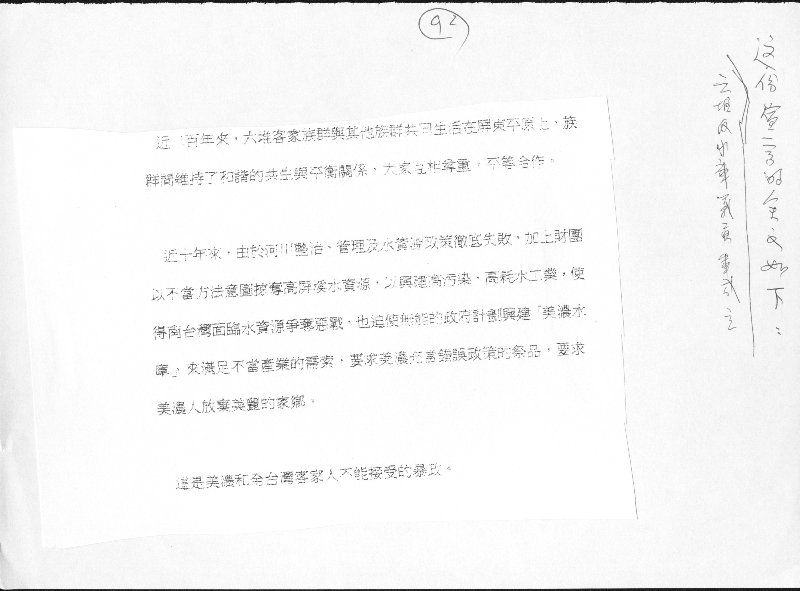 92
這份宣言的全文如下：
近二百年來，六堆客家族群與其他族群共同生活在屏東平原上、族
群間維持了和諧的共生與平衡關係，大家互相尊重，平等合作。
近十年來，由於河川整治、管理及水資源政策徹底失敗，加上財團
以不當方法意圖掠奪高屏溪水資源，以興建高污染，高耗水工業，使
得南台灣面臨水資源爭奪惡戰，也迫使無能的政府計劃興建「美濃水
庫」來滿足不當產業的需索，要求美濃充當錯誤政策的祭品，要求
美濃人放棄美麗的家鄉。
這是美濃和全台灣客家人不能接受的暴政。